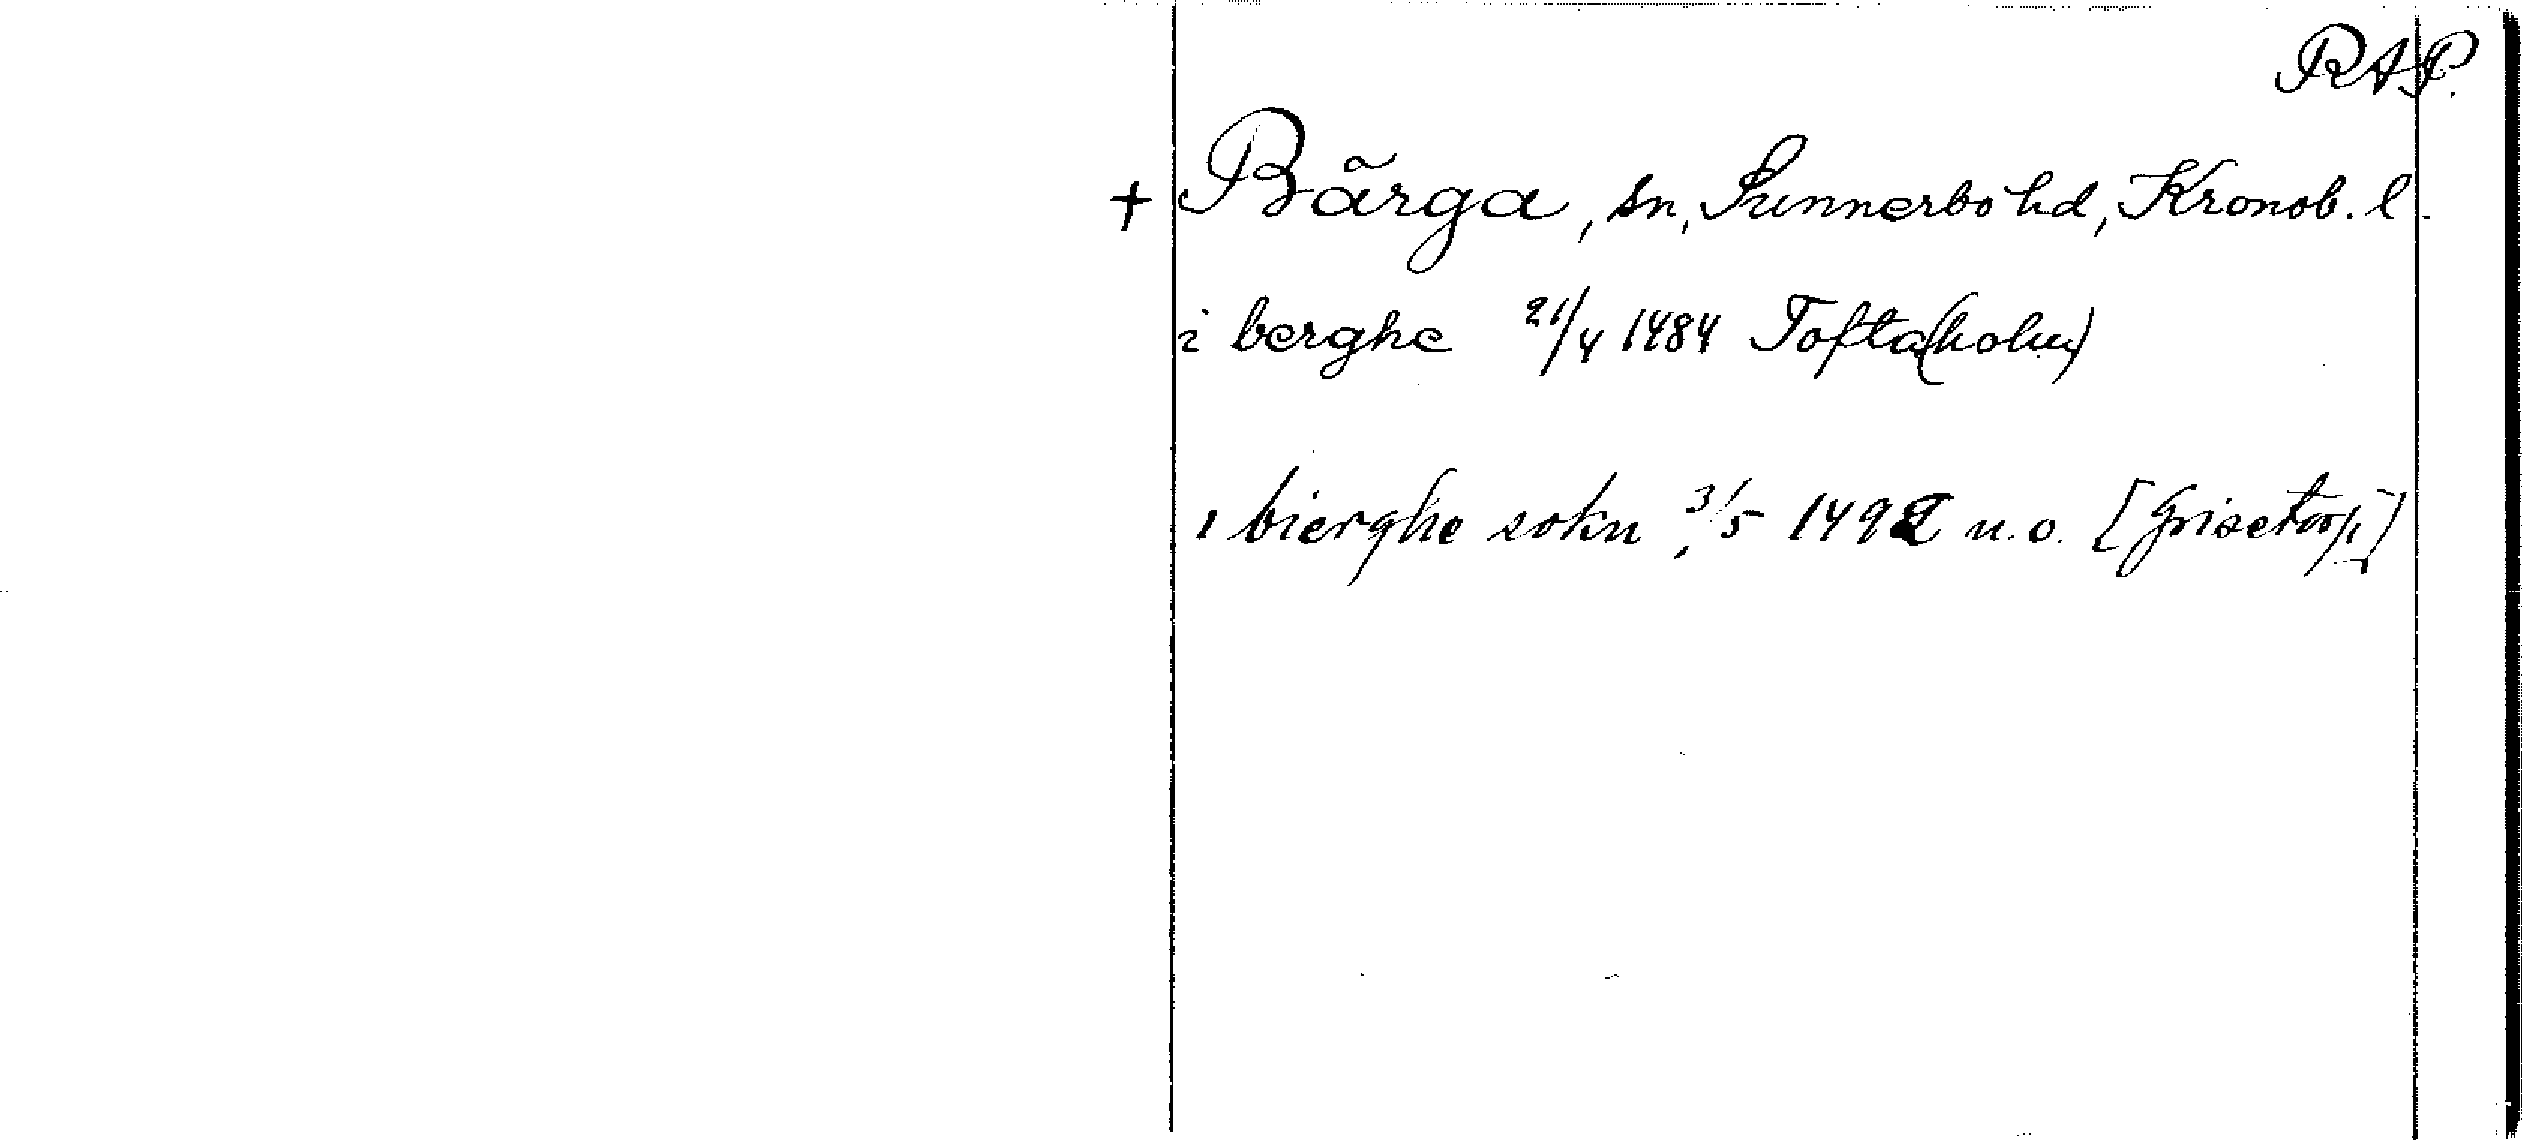 RAP.
+ Bärga, sn, Sunnerbo hd, Kronob. l.
i berghe 21/4 1484 Tofta(holm)
i bierghe sokn, 3/5 1492 u.o. [Grisetorp]